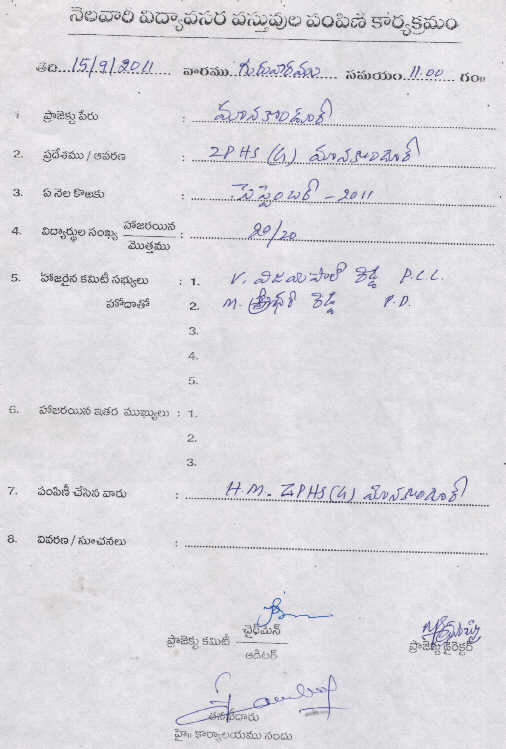 నెలవారి విద్యావసర వస్తువుల పంపిణి కార్యక్రమం
తేది 15/9/2011 వారము గురువారము సమయం 11.00 గం॥
1 ప్రాజెక్టు పేరు : మానకొండూర్
2. ప్రదేశము / ఆవరణ : ZPHS (G) మానకొండూర్
3. ఏ నెల కొఱకు : సెప్టెంబర్ - 2011
4. విద్యార్థుల సంఖ్య హాజరయిన / మొత్తము : 20/20
5. హాజరైన కమిటీ సభ్యులు : 1. V. విజయపాల్ రెడ్డి P.C.C.
హోదాతో 2. M. శ్రీధర్ రెడ్డి P.D.
3.
4.
5.
6. హాజరయిన ఇతర ముఖ్యులు : 1.
2.
3.
7. పంపిణీ చేసిన వారు : H.M. ZPHS (G) మానకొండూర్
8. వివరణ / సూచనలు :
ప్రాజెక్టు కమిటీ చైర్‌మన్ / ఆడిటర్
ప్రాజెక్టు డైరెక్టర్
తనిఖీదారు
హై॥ కార్యాలయము నందు